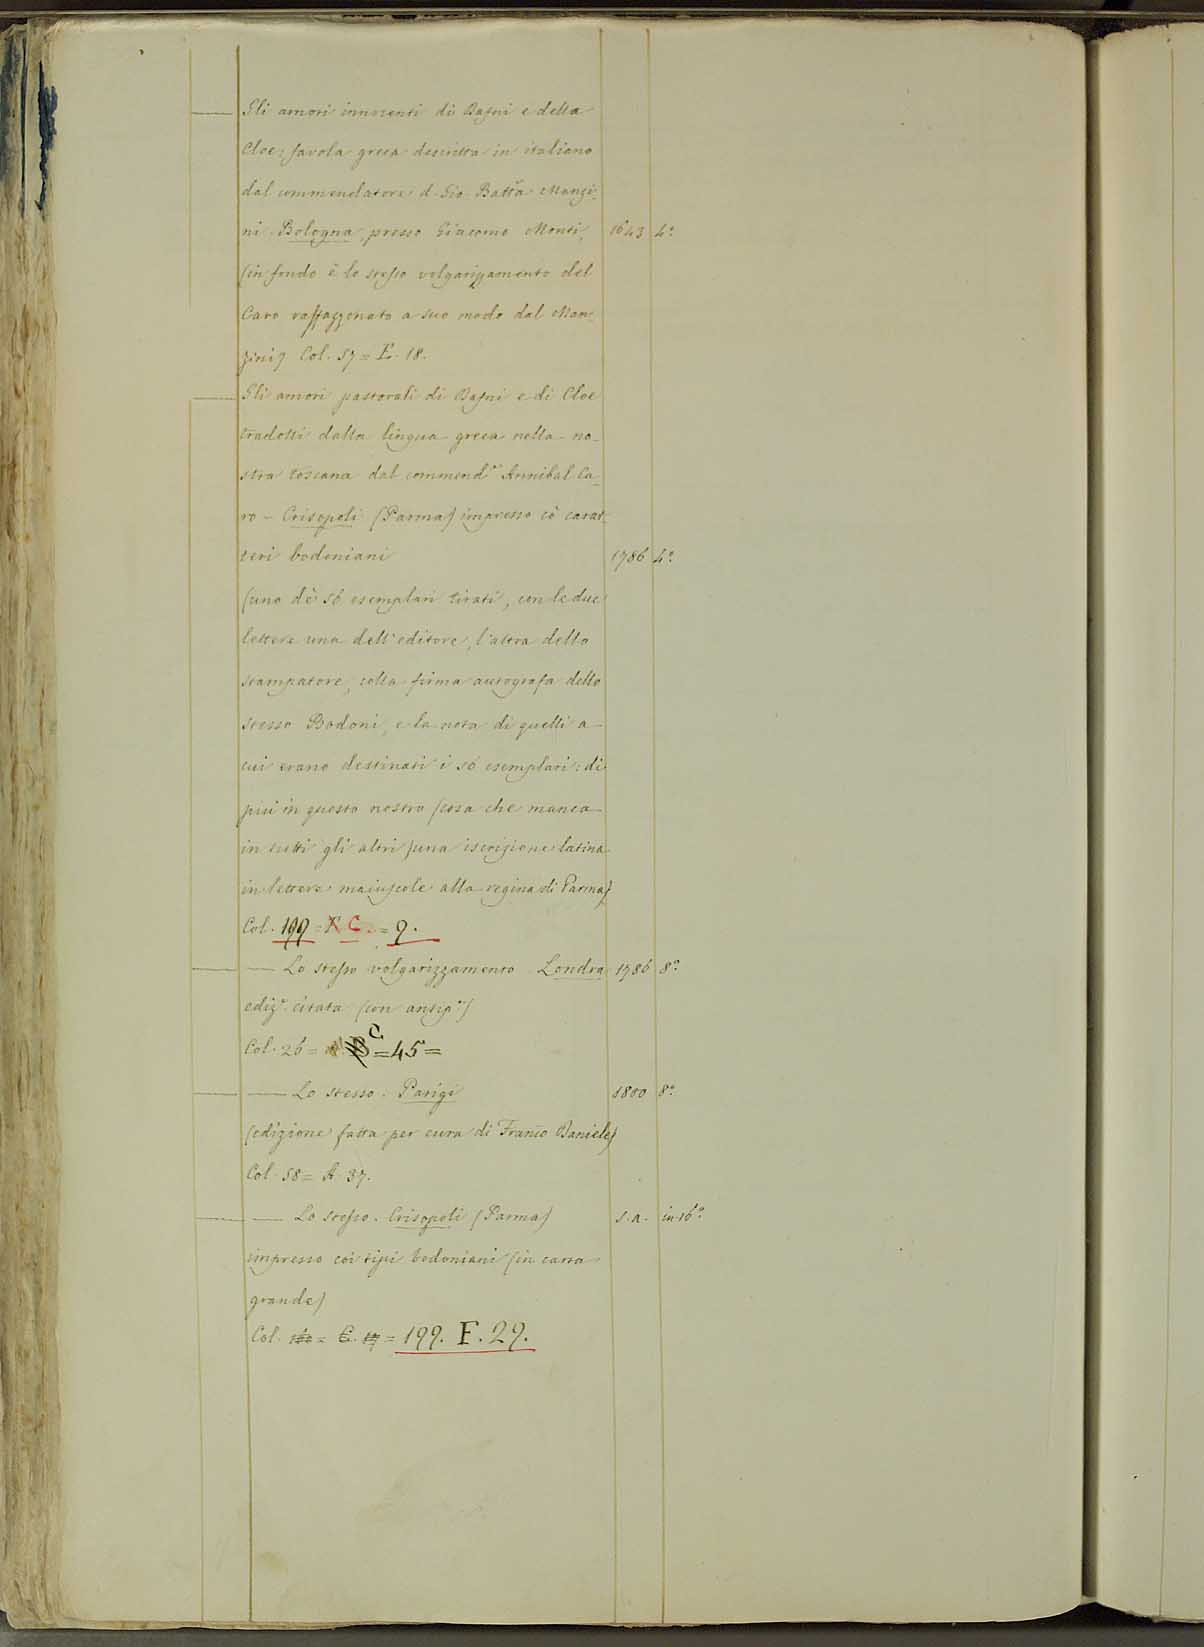 Gli amori innocenti di Dafni e della
Cloe; favola greca descritta in italiano
dal commendatore d. Gio. Batt.a Manzi-
ni. Bologna, presso Giacomo Monti, 1643 4.o
(in fondo è lo stesso volgarizzamento del
Caro raffazzonato a suo modo dal Man-
zini) Col. 57 = E. 18.
Gli amori pastorali di Dafni e di Cloe
tradotti dalla lingua greca nella no-
stra toscana dal commend.r Annibal Ca-
ro - Crisopoli (Parma) impresso cò carat-
teri bodoniani 1786 4.o
(uno dè 56 esemplari tirati, con le due
lettere una dell'editore, l'altra dello
stampatore, colla firma autografa dello
stesso Bodoni, e la nota di quelli a
cui erano destinati i 56 esemplari: di
più in questo nostro (cosa che manca
in tutti gli altri) una iscrizione latina
in lettere maiuscole alla regina di Parma)
Col. 199 = C = 9.
— Lo stesso volgarizzamento. Londra 1786 8.o
ediz.e citata (con antip.a)
Col. 26 = C = 45 =
— Lo stesso. Parigi 1800 8.o
(edizione fatta per cura di Franco Daniele)
Col. 58 = A. 37.
— Lo stesso. Crisopoli (Parma) s.a. in 16.o
impresso coi tipi bodoniani (in carta
grande)
Col. = 199. F. 29.